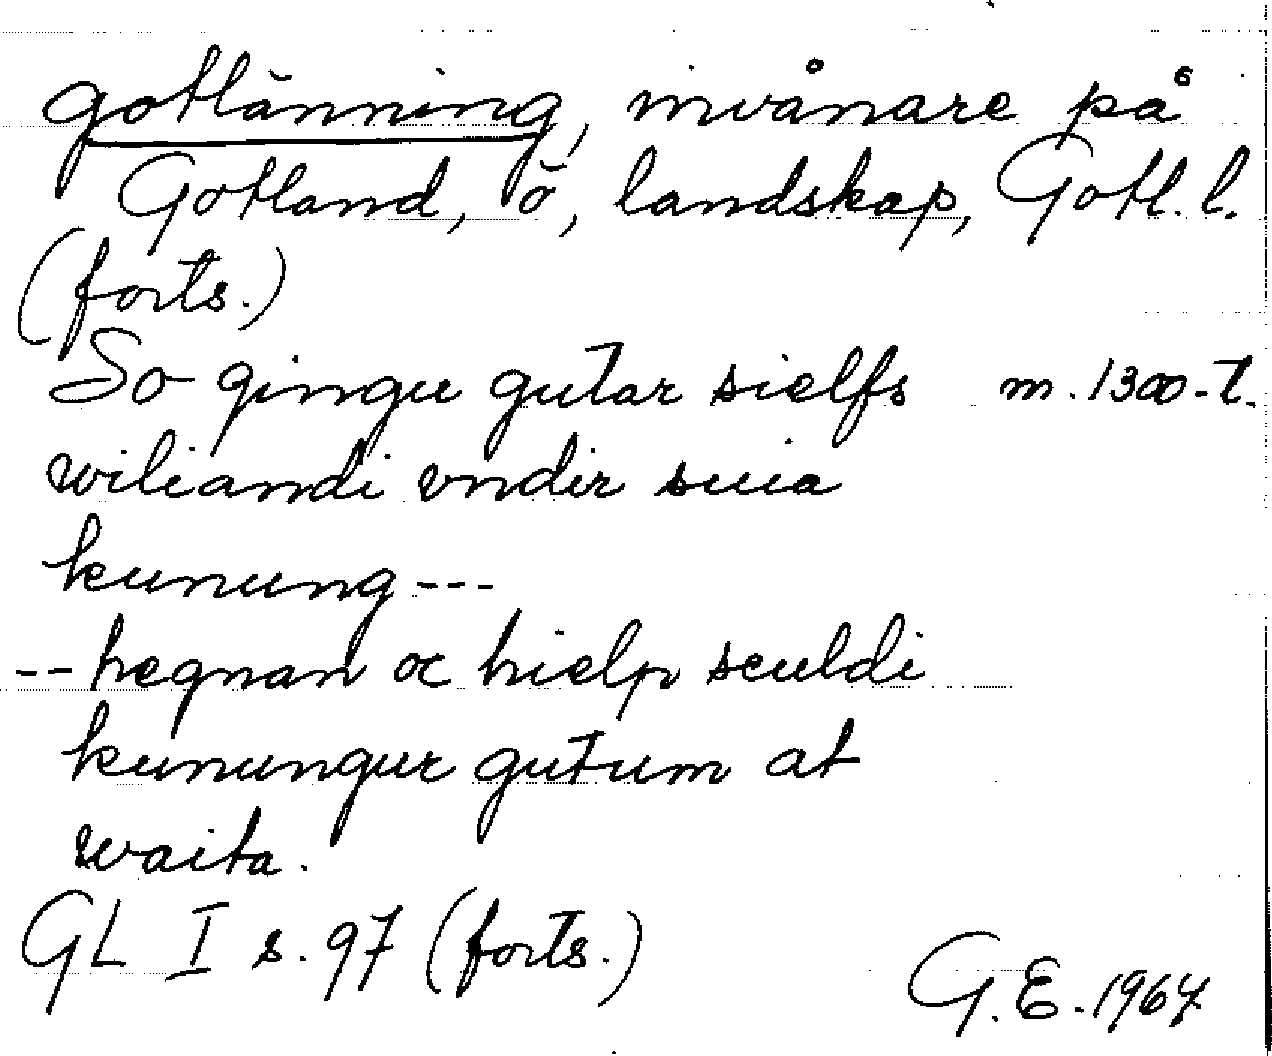 gotlänning, invånare på 6
Gotland, ö, landskap, Gotl. l.
(forts.)
So gingu gutar sielfs m. 1300-t.
wiliandi vndir suia
kunung ---
-- hegnan oc hielp sculdi
kunungur gutum at
waita.
GL I s. 97 (forts.)
G.E. 1967